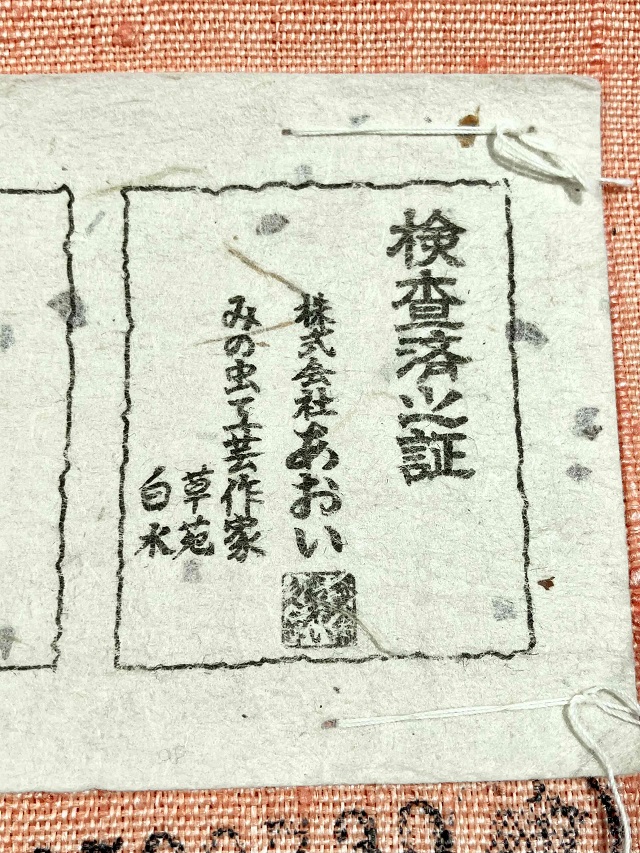 検査済之証
株式会社あおい
みの虫工芸作家
草苑
白水